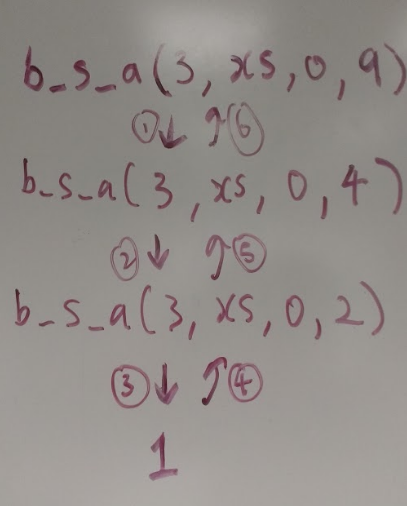 b_s_a(3, xs, 0, 9)
① ↓ ↑ ⑥
b_s_a(3, xs, 0, 4)
② ↓ ↑ ⑤
b_s_a(3, xs, 0, 2)
③ ↓ ↑ ④
1